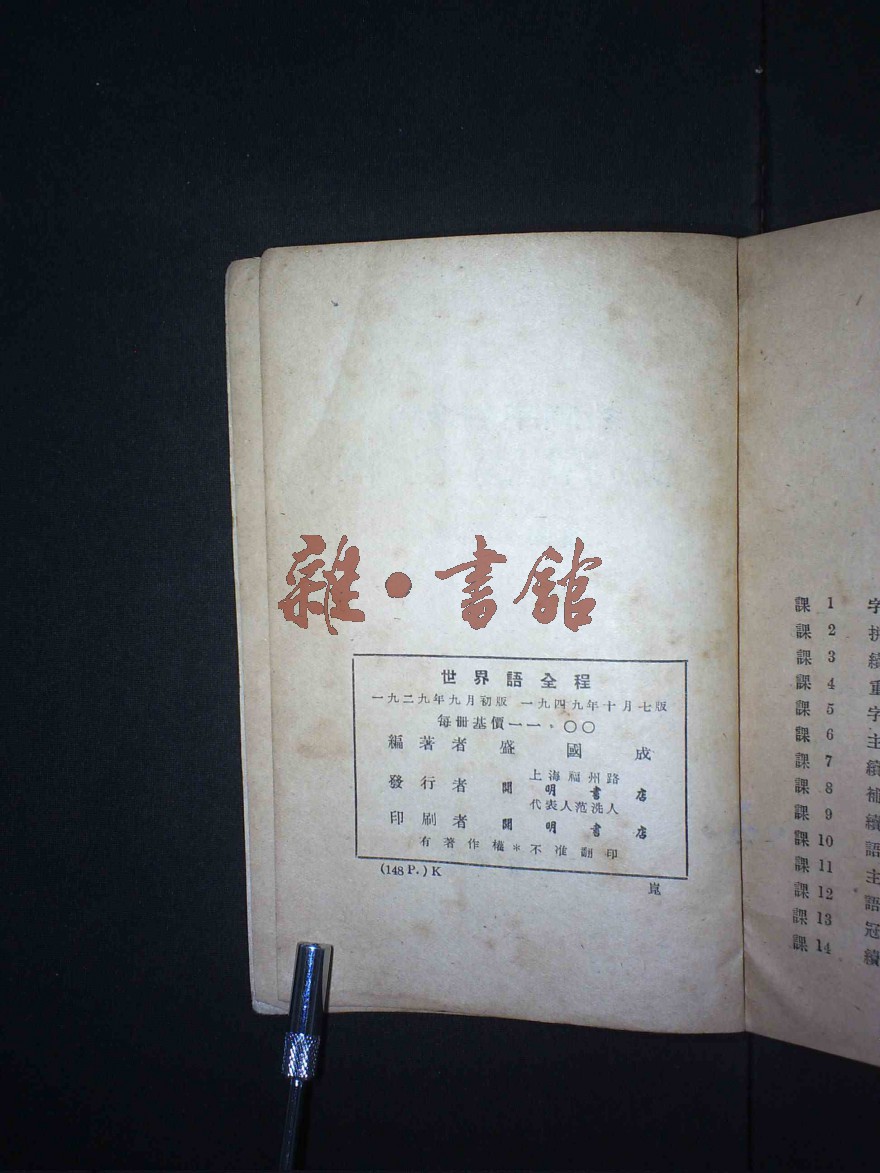 雜·書舘
世界語全程
一九二九年九月初版 一九四九年十月七版
每冊基價一一.〇〇
編著者 盛國成
發行者 上海福州路
開明書店
代表人范洗人
印刷者 開明書店
有著作權*不准翻印
(148 P.) K
崑
課 1 字
課 2
課 3 續
課 4 重
課 5 字
課 6 主
課 7 續
課 8 補
課 9 續
課 10 語
課 11 主
課 12 語
課 13 冠
課 14 續